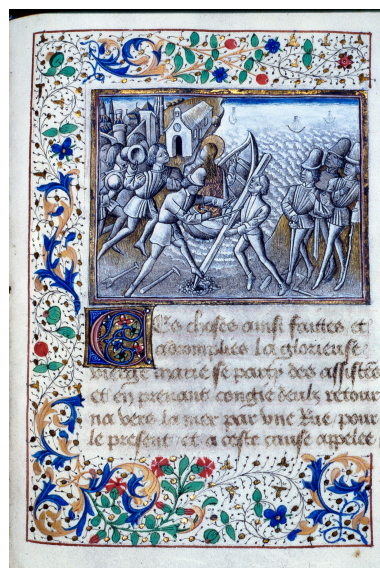 Ces choses ainsi faittes et
acomplies La glorieuse
vierge marie se party des assistēs
et en prenant congie deulz retour
na vers la mer par vne Rue pour
le present et a ceste cause appelee